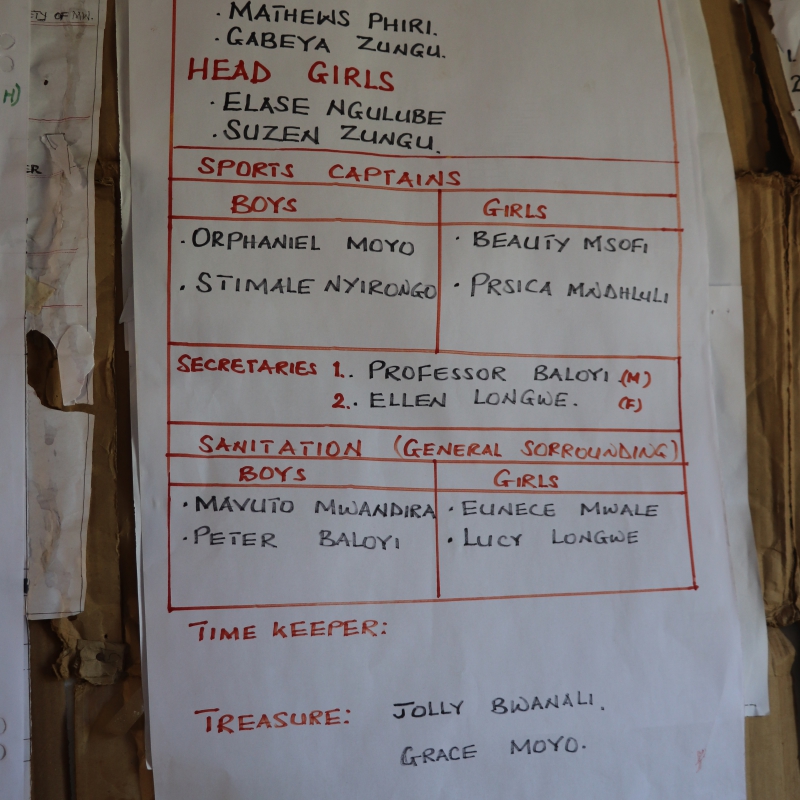 ETY OF MW.
H)
ER
· MATHEWS PHIRI.
· GABEYA ZUNGU.
HEAD GIRLS
· ELASE NGULUBE
· SUZEN ZUNGU.
SPORTS CAPTAINS
BOYS GIRLS
· ORPHANIEL MOYO · BEAUTY MSOFI
· STIMALE NYIRONGO · PRSICA MNDHLULI
SECRETARIES 1. PROFESSOR BALOYI (M)
2. ELLEN LONGWE. (F)
SANITATION (GENERAL SORROUNDING)
BOYS GIRLS
· MAVUTO MWANDIRA · EUNECE MWALE
· PETER BALOYI · LUCY LONGWE
TIME KEEPER:
TREASURE: JOLLY BWANALI.
GRACE MOYO.